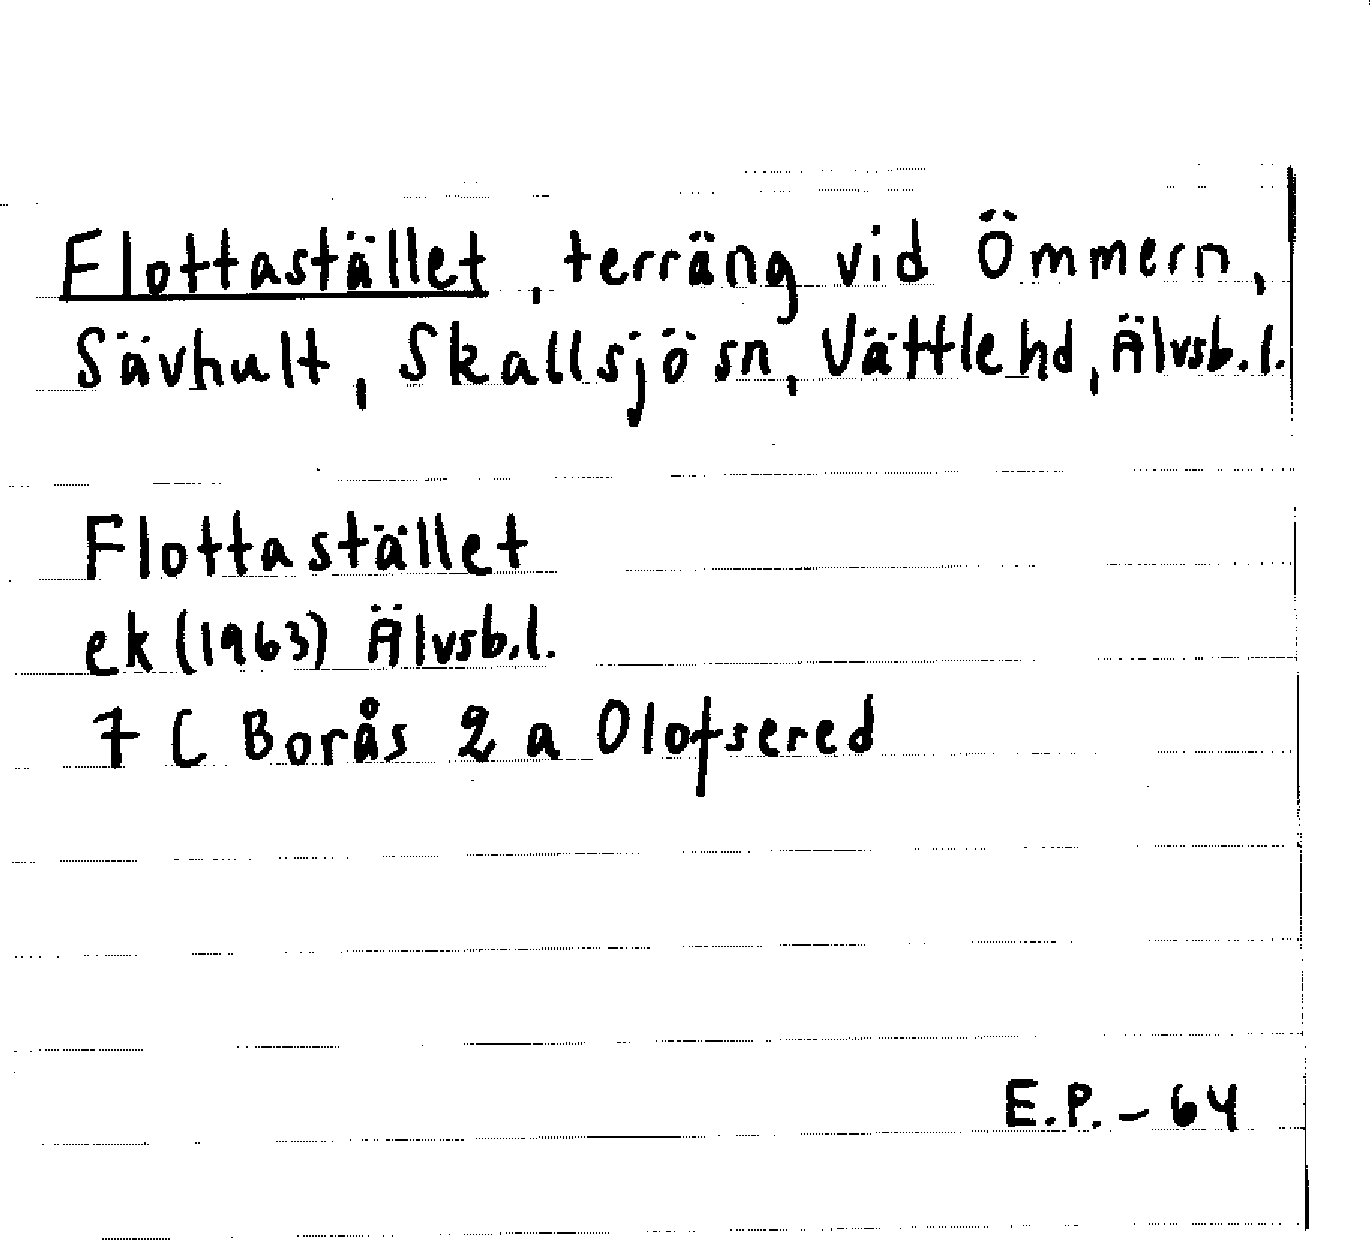 Flottastället, terräng vid Ömmern,
Sävhult, Skallsjö sn, Vättle hd, Älvsb.l.
Flottastället
ek (1963) Älvsb.l.
7 C Borås 2 a Olofsered
E.P. - 64